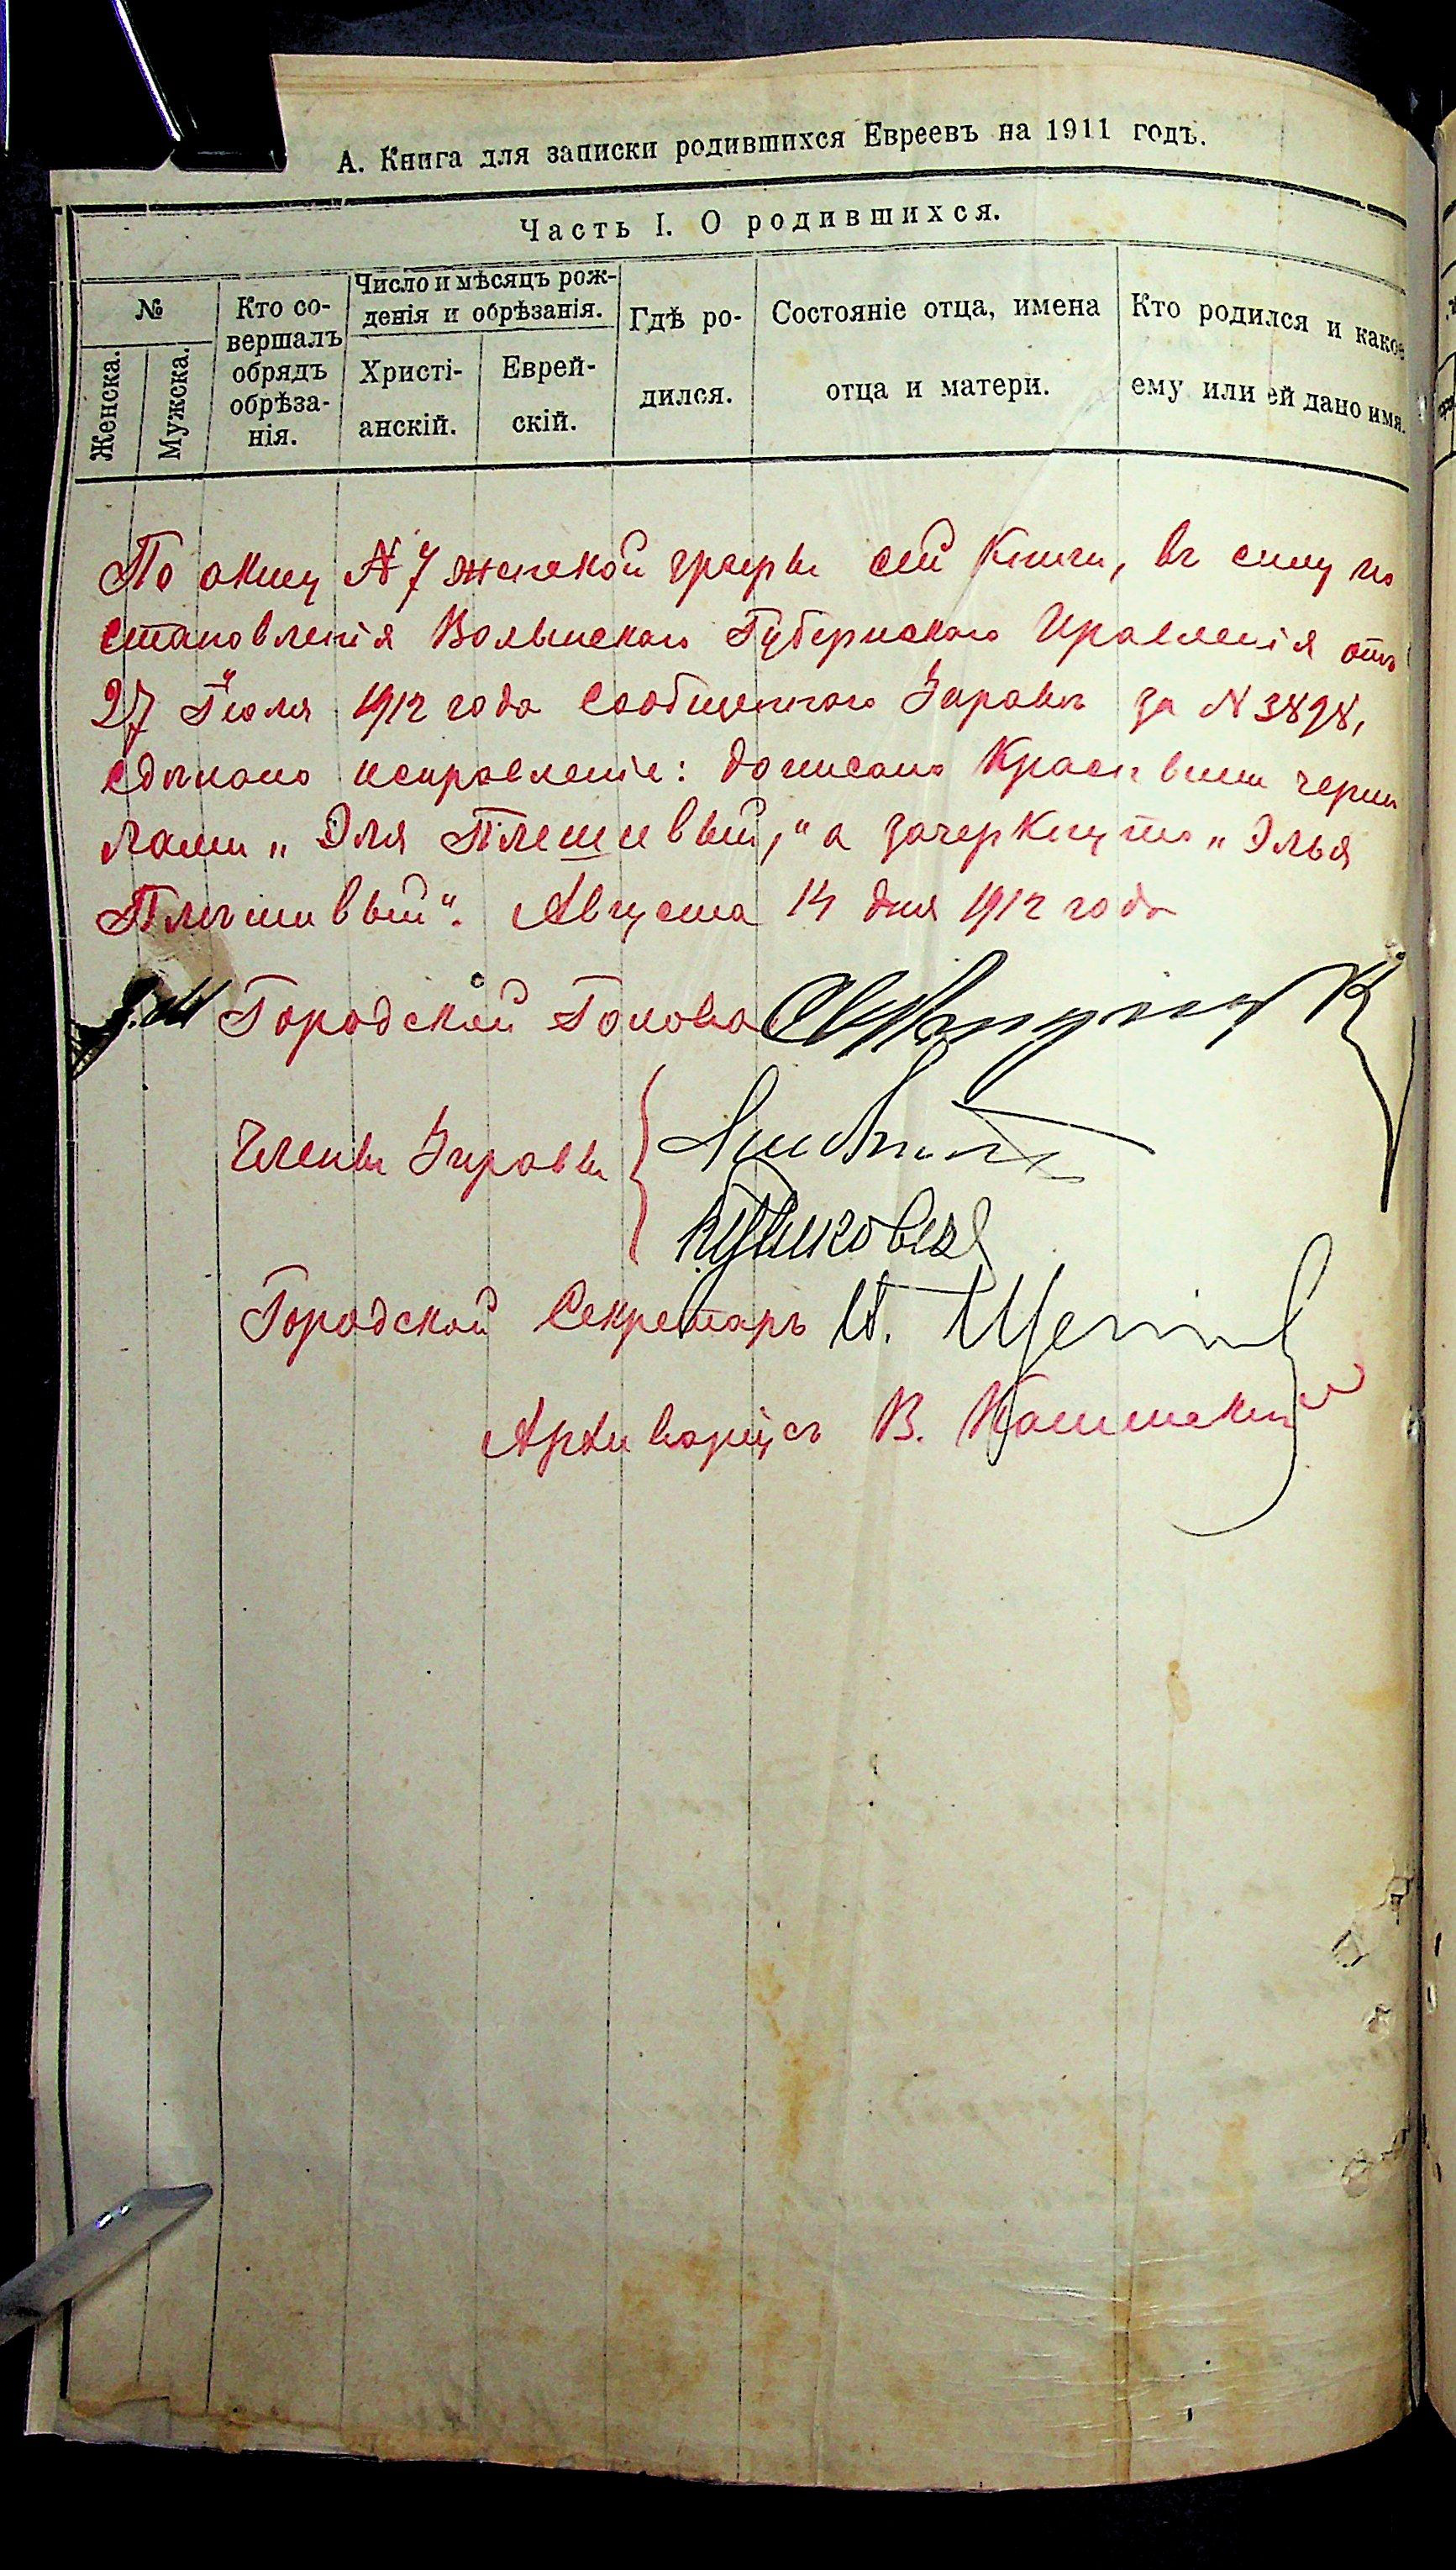 А. Книга для записки родившихся Евреевъ на 1911 годъ.
Часть I. О родившихся.
№
Женска.
Мужска.
Кто со-
вершалъ
обрядъ
обрѣза-
нія.
Число и мѣсяцъ рож-
денія и обрѣзанія.
Христі-
анскій.
Еврей-
скій.
Гдѣ ро-
дился.
Состояніе отца, имена
отца и матери.
Кто родился и какое
ему или ей дано имя.
По акту № 7 женской графы сей книги, въ силу по
становленія Волынскаго Губернскаго Правленія отъ
27 Іюля 1912 года сообщеннаго Управѣ за № 3898,
сдѣлано исправленіе: дописано красными черни
лами „Эля Плешивый," а зачеркнуто „Элья
Плѣшивый". Августа 14 дня 1912 года
Городской Голова
Члены Управы
Городской Секретарь
Архиваріусъ В.